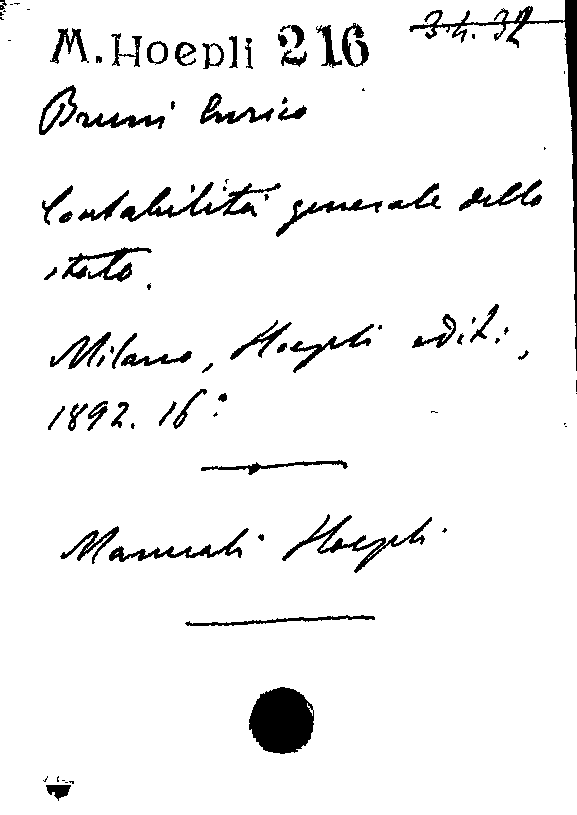 M. Hoepli 216
3.4.32
Bruni Enrico
Contabilità generale dello
stato.
Milano, Hoepli edit.,
1892. 16°
Manuali Hoepli